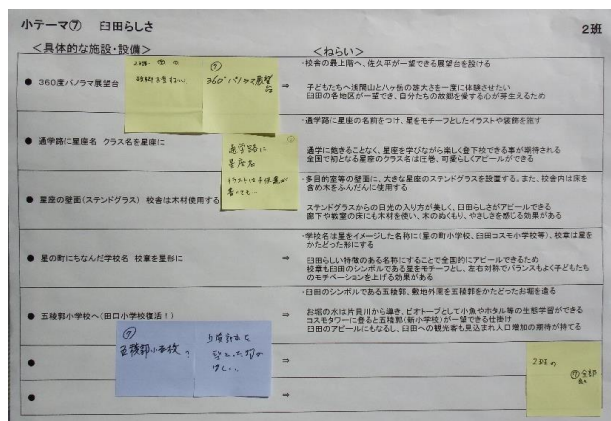 小テーマ⑦ 臼田らしさ
2班
＜具体的な施設・設備＞
＜ねらい＞
● 360度パノラマ展望台
⑦
360°パノラマ展望台
⇒
・校舎の最上階へ、佐久平が一望できる展望台を設ける
子どもたちへ浅間山と八ヶ岳の雄大さを一度に体験させたい
臼田の各地区が一望でき、自分たちの故郷を愛する心が芽生えるため
● 通学路に星座名 クラス名を星座に
通学路に
星座名
⇒
・通学路に星座の名前をつけ、星をモチーフとしたイラストや装飾を施す
通学に飽きることなく、星座を学びながら楽しく登下校できる事が期待される
全国で初となる星座のクラス名は圧巻、可愛らしくアピールができる
● 星座の壁面(ステンドグラス) 校舎は木材使用する
⇒
・多目的室等の壁面に、大きな星座のステンドグラスを設置する。また、校舎内は床を
含め木をふんだんに使用する
ステンドグラスからの日光の入り方が美しく、臼田らしさがアピールできる
廊下や教室の床にも木材を使い、木のぬくもり、やさしさを感じる効果がある
● 星の町にちなんだ学校名 校章を星形に
⇒
・学校名は星をイメージした名称に(星の町小学校、臼田コスモ小学校等)、校章は星を
かたどった形にする
臼田らしい特徴のある名称にすることで全国的にアピールできるため
校章も臼田のシンボルである星をモチーフとし、左右対称でバランスもよく子どもたち
のモチベーションを上げる効果がある
● 五稜郭小学校へ(田口小学校復活！)
⇒
・臼田のシンボルである五稜郭、敷地外周を五稜郭をかたどったお堀を造る
お堀の水は片貝川から導き、ビオトープとして小魚やホタル等の生態学習ができる
コスモタワーに登ると五稜郭(新小学校)が一望できる仕掛け
臼田のアピールにもなるし、臼田への観光客も見込まれ人口増加の期待が持てる
⑦
五稜郭小学校?
●
⇒
2班の
⑦全部
●
⇒